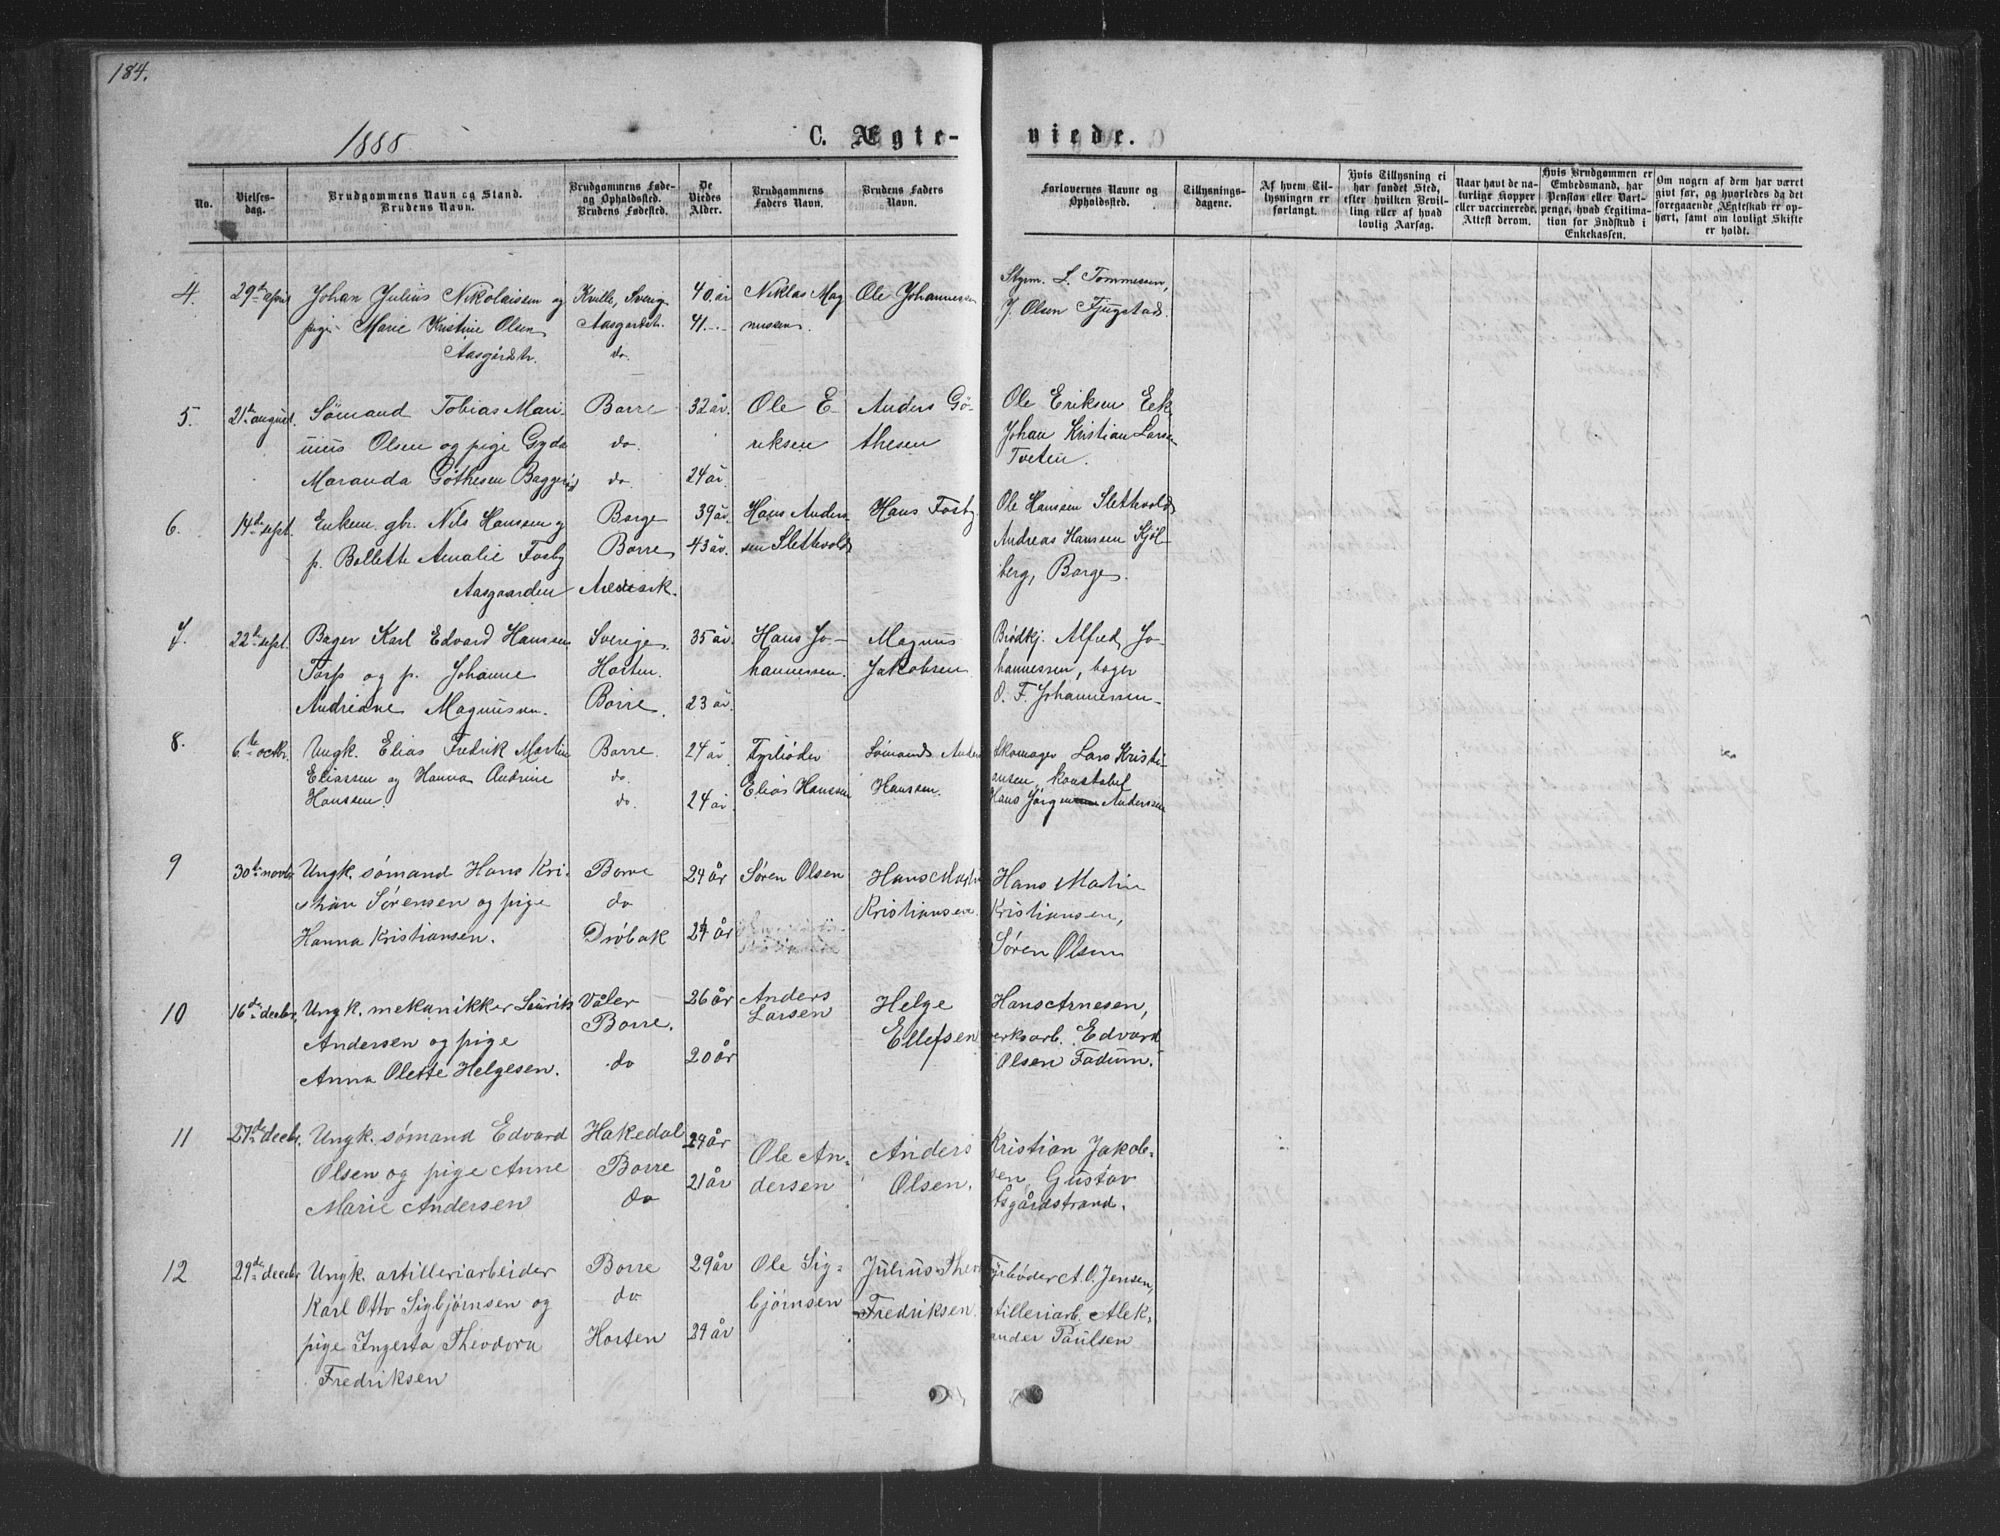 184.
1888
C. Ægte-
viede.
No.
Vielses-
dag.
Brudgommens Navn og Stand.
Brudens Navn.
Brudgommens Føde-
og Opholdssted.
Brudens Fødested.
De
Viedes
Alder.
Brudgommens
Faders Navn.
Brudens Faders
Navn.
Forlovernes Navne og
Opholdssted.
Tillysnings-
dagene.
Af hvem Til-
lysningen er
forlangt.
Hvis Tillysning ei
har fundet Sted,
efter hvilken Bevil-
ling eller af hvad
lovlig Aarsag.
Naar havt de na-
turlige Kopper
eller vaccinerede.
Attest derom.
Hvis Brudgommen er
Embedsmand, har
Pension eller Vart-
penge, hvad Legitima-
tion for Indskud i
Enkekassen.
Om nogen af dem har været
givt før, og hvorledes da det
foregaaende Ægteskab er op-
hørt, samt om lovligt Skifte
er holdt.
4.
29de april
Johan Julius Nikolaissen og
pige Marie Kristine Olsen
Aasgårdstr.
Kville, Sverig
Aasgardstr.
do.
40. år
41.--
Niklas Mag
nussen.
Ole Johannessen
Stgm. L. Tommesen,
J. Olsen Fjugstad.
5.
21de august
Sømand Tobias Mari-
nius Olsen og pige Gyda
Maranda Gøthesen Baggerød
Borre
do.
do.
32 år.
24 år.
Ole E-
riksen
Anders Gø-
thesen
Ole Eriksen Eek
Johan Kristian Larsen
Tveten.
6.
14de sept.
Enkem. gbr. Nils Hanssen og
p. Bollette Amalie Fosby
Aasgaarden
Borge
Borre
Aremark.
39 år.
43 år.
Hans Anders
sen Slettevold
Hans Fosby
Ole Hansen Slettevold
Andreas Hanssen Sjøl-
berg, Borge.
7.
22de sept.
Bager Karl Edvard Hanssen
Torp og p. Johanne
Andriane Magnussen.
Sverige
Horten.
Borre.
35 år.
23 år.
Hans Jo-
hannessen.
Magnus
Jakobsen
Brødkj. Alfred Jo-
hannessen, bager
O. F. Johannessen
8.
6te octbr.
Ungk. Elias Fredrik Martin
Eliassen og Hanna Andrine
Hanssen.
Borre
do.
do.
24 år
24 år.
Fyrbøder
Elias Hanssen
Sømand Anders
Hanssen.
Skomager Lars Kristi-
ansen, konstabel
Hans Jørgen Anderssen
9
30te novbr
Ungk. sømand Hans Kri-
stian Sørensen og pige
Hanna Kristiansen.
Borre
do
Drøbak
24 år
24 år
Søren Olsen
Hans Martin
Kristiansen.
Hans Martin
Kristiansen,
Søren Olsen
10
16de decbr.
Ungk. mekanikker Laurits
Andersen og pige
Anna Olette Helgesen.
Våler
Borre.
do
26 år
20 år
Anders
Larsen
Helge
Ellefsen
Hans Arnesen,
verksarb. Edvard
Olsen Fadum.
11
27de decbr.
Ungk. sømand Edvard
Olsen og pige Anne
Marie Andersen
Hakedal
Borre
do
24 år
21 år
Ole An-
dersen
Anders
Olsen.
Kristian Jakob-
sen, Gustav
Åsgårdstrand.
12
29de decbr
Ungk. artilleriarbeider
Karl Otto Sigbjørnsen og
pige Ingerta Theodora
Fredriksen
Borre
do
Horten
29 år
24 år
Ole Sig-
bjørnsen
Julius Theo
Fredriksen.
Fyrbøder A. O. Jensen,
artilleriarb. Alek-
sander Paulsen